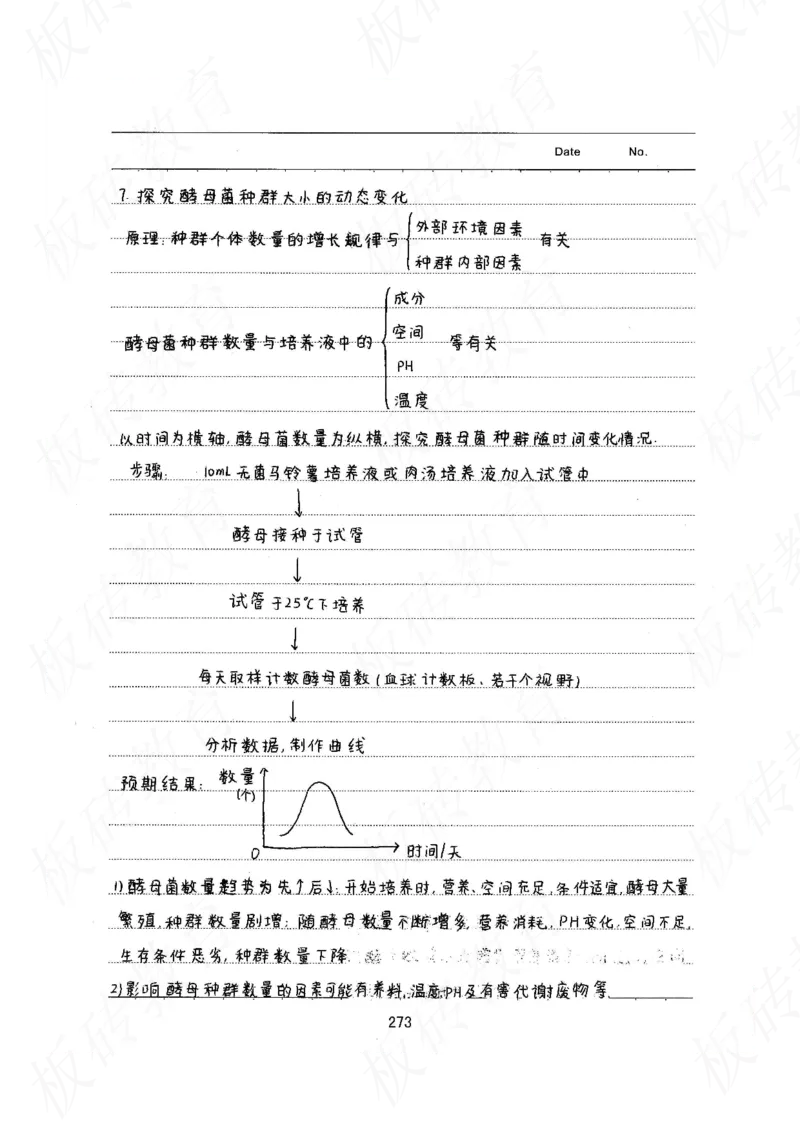 Date No.
7. 探究酵母菌种群大小的动态变化
原理:种群个体数量的增长规律与 外部环境因素 有关
种群内部因素
成分
酵母菌种群数量与培养液中的 空间 等有关
PH
温度
以时间为横轴,酵母菌数量为纵横,探究酵母菌种群随时间变化情况.
步骤: 10mL无菌马铃薯培养液或肉汤培养液加入试管中
↓
酵母接种于试管
↓
试管于25℃下培养
↓
每天取样计数酵母菌数(血球计数板、若干个视野)
↓
分析数据,制作曲线
预期结果: 数量
(个)
0 时间/天
1)酵母菌数量趋势为先↑后↓:开始培养时,营养、空间充足,条件适宜,酵母大量
繁殖,种群数量剧增;随酵母数量不断增多,营养消耗,PH变化,空间不足,
生存条件恶劣,种群数量下降
2)影响酵母种群数量的因素可能有养料,温度,PH及有害代谢废物等
273
板砖教育